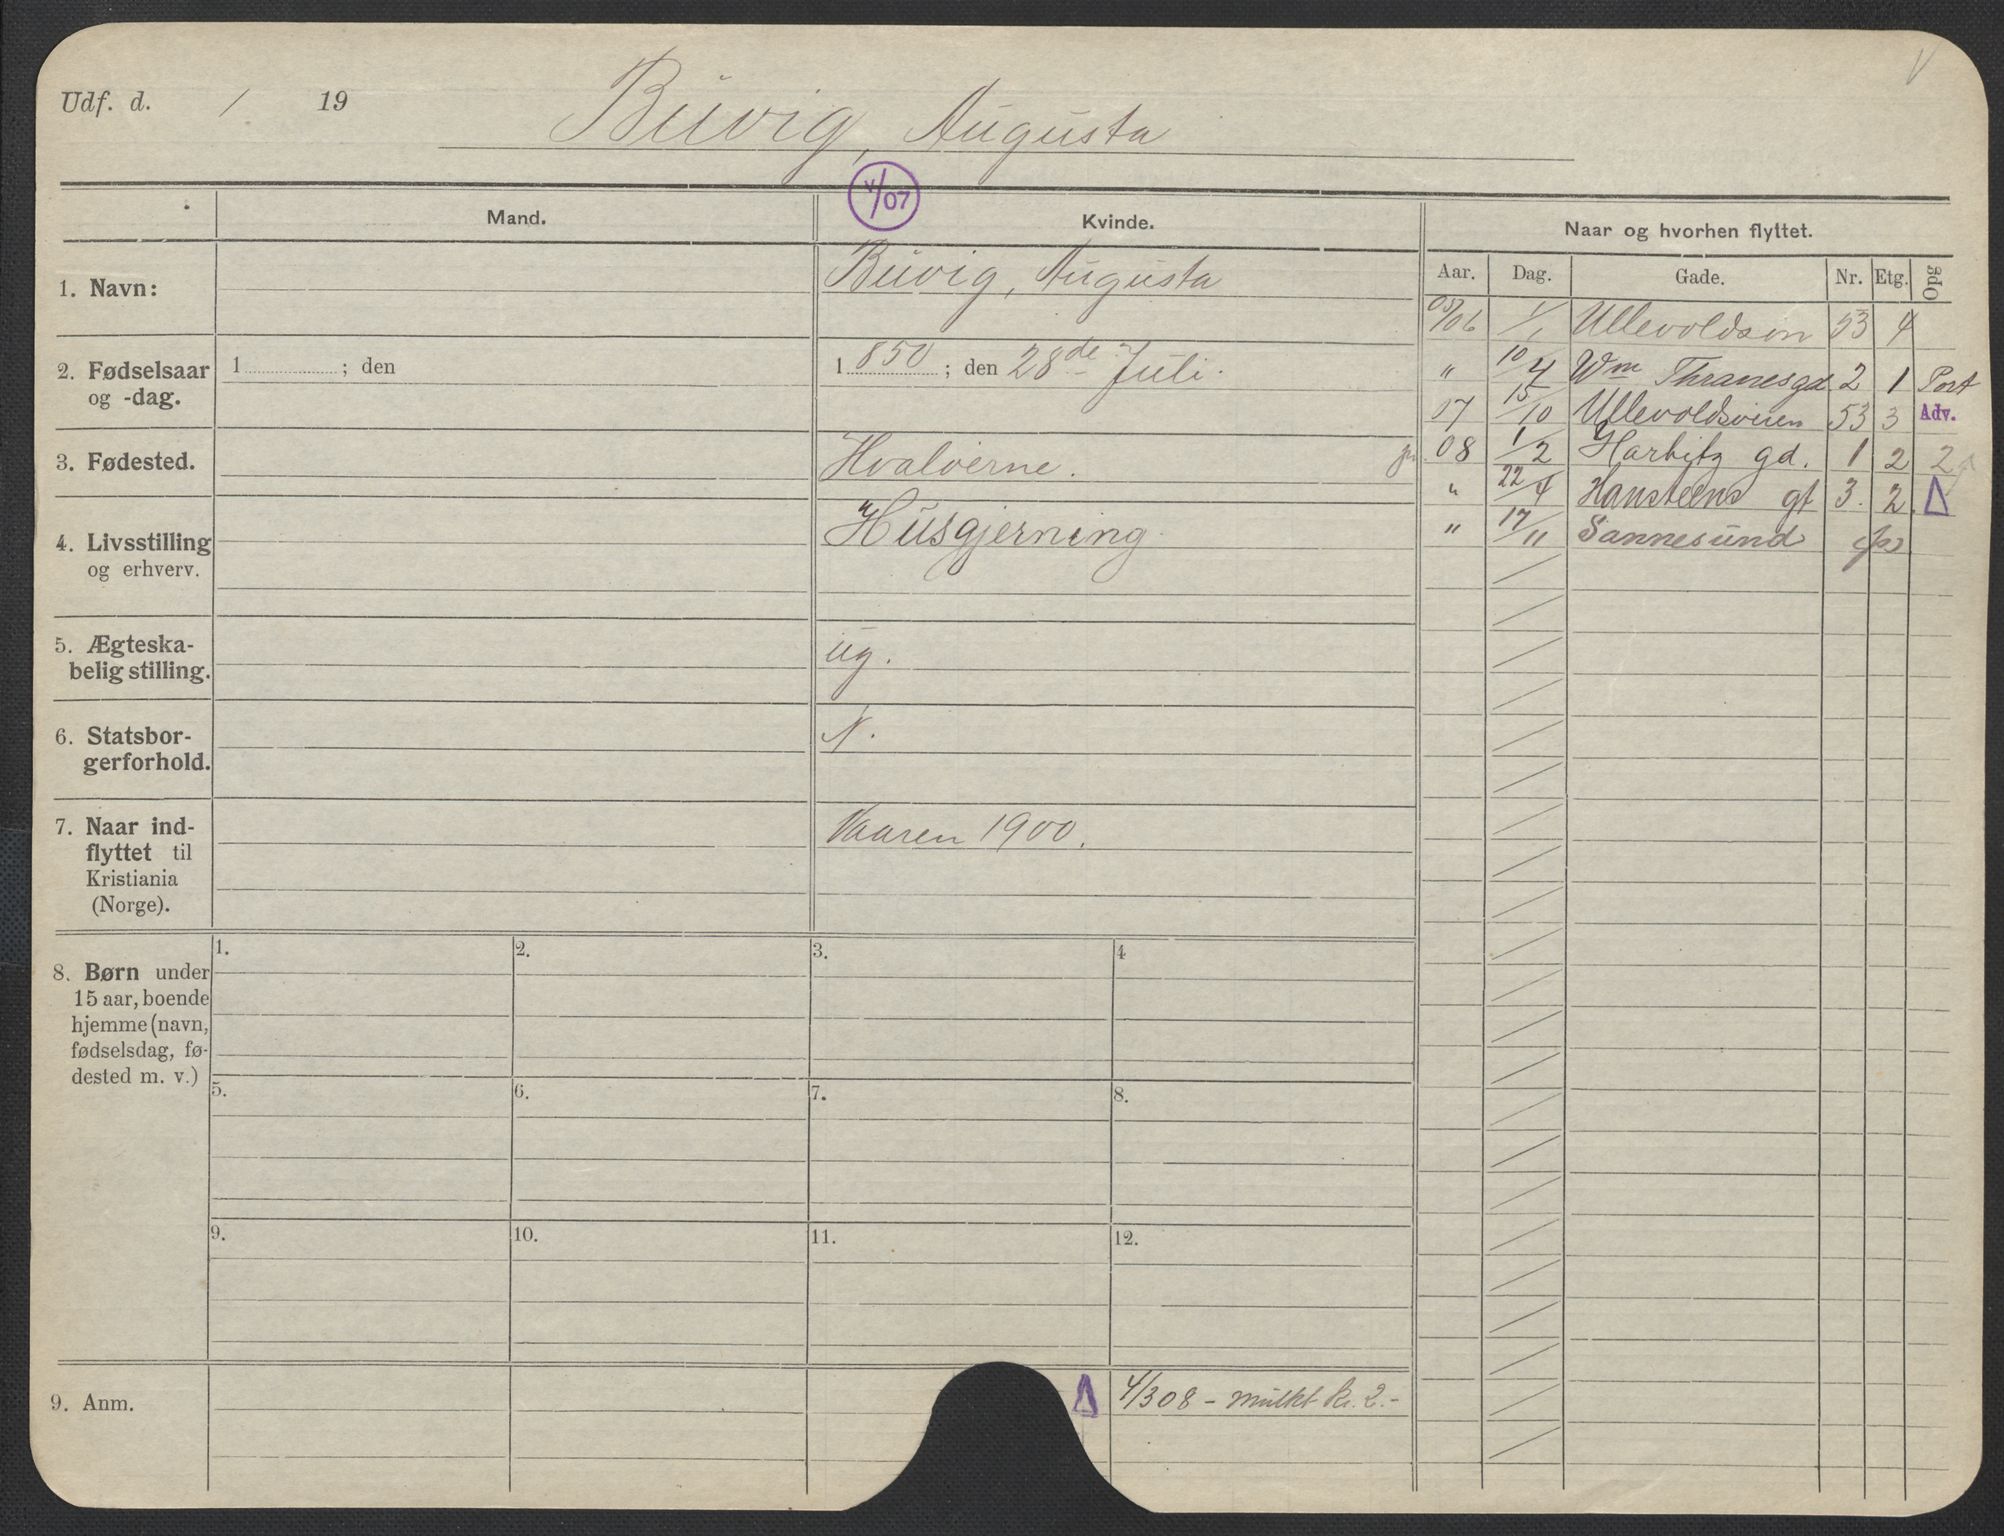 Udf. d. / 19
Buvig, Augusta
V/07
Mand.
Kvinde.
Naar og hvorhen flyttet.
Aar. Dag. Gade. Nr. Etg. Opg
1. Navn:
Buvig, Augusta
2. Fødselsaar
og -dag.
1 ; den
1850; den 28de Juli.
3. Fødested.
Hvaløerne.
4. Livsstilling
og erhverv.
Husgjerning
5. Ægteska-
belig stilling.
ug.
6. Statsbor-
gerforhold.
N.
7. Naar ind-
flyttet til
Kristiania
(Norge).
Vaaren 1900.
05/06 1/1 Ullevoldsvn 53 4
" 10/4 Wm Thranesgd 2 1 Port
07 15/10 Ullevoldsveien 53 3 Adv.
08 1/2 Harbitz gd. 1 2 2
" 22/4 Hansteens gt 3. 2. Δ
" 17/11 Sannesund
8. Børn under
15 aar, boende
hjemme (navn,
fødselsdag, fø-
dested m. v.)
1. 2. 3. 4
5. 6. 7. 8.
9. 10. 11. 12.
9. Anm.
Δ 4/308 - mulkt kr. 2.-